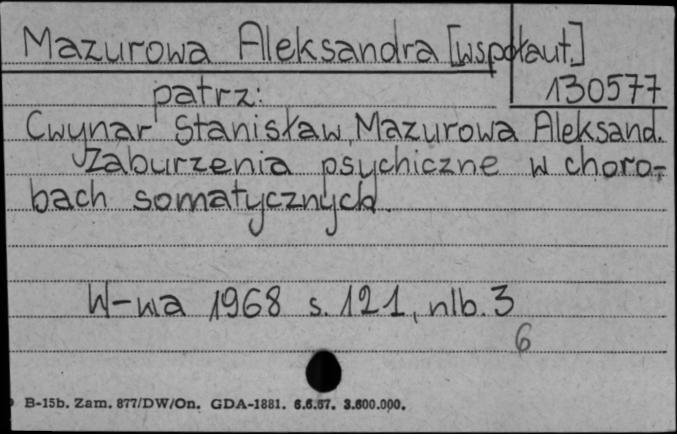 Mazurowa Aleksandra [współaut.]
130577
patrz:
Cwynar Stanisław, Mazurowa Aleksand.
Zaburzenia psychiczne w choro-
bach somatycznych.
W-wa 1968 s. 121, nlb. 3
6
B-15b. Zam. 877/DW/On. GDA-1881. 6.6.67. 3.600.000.